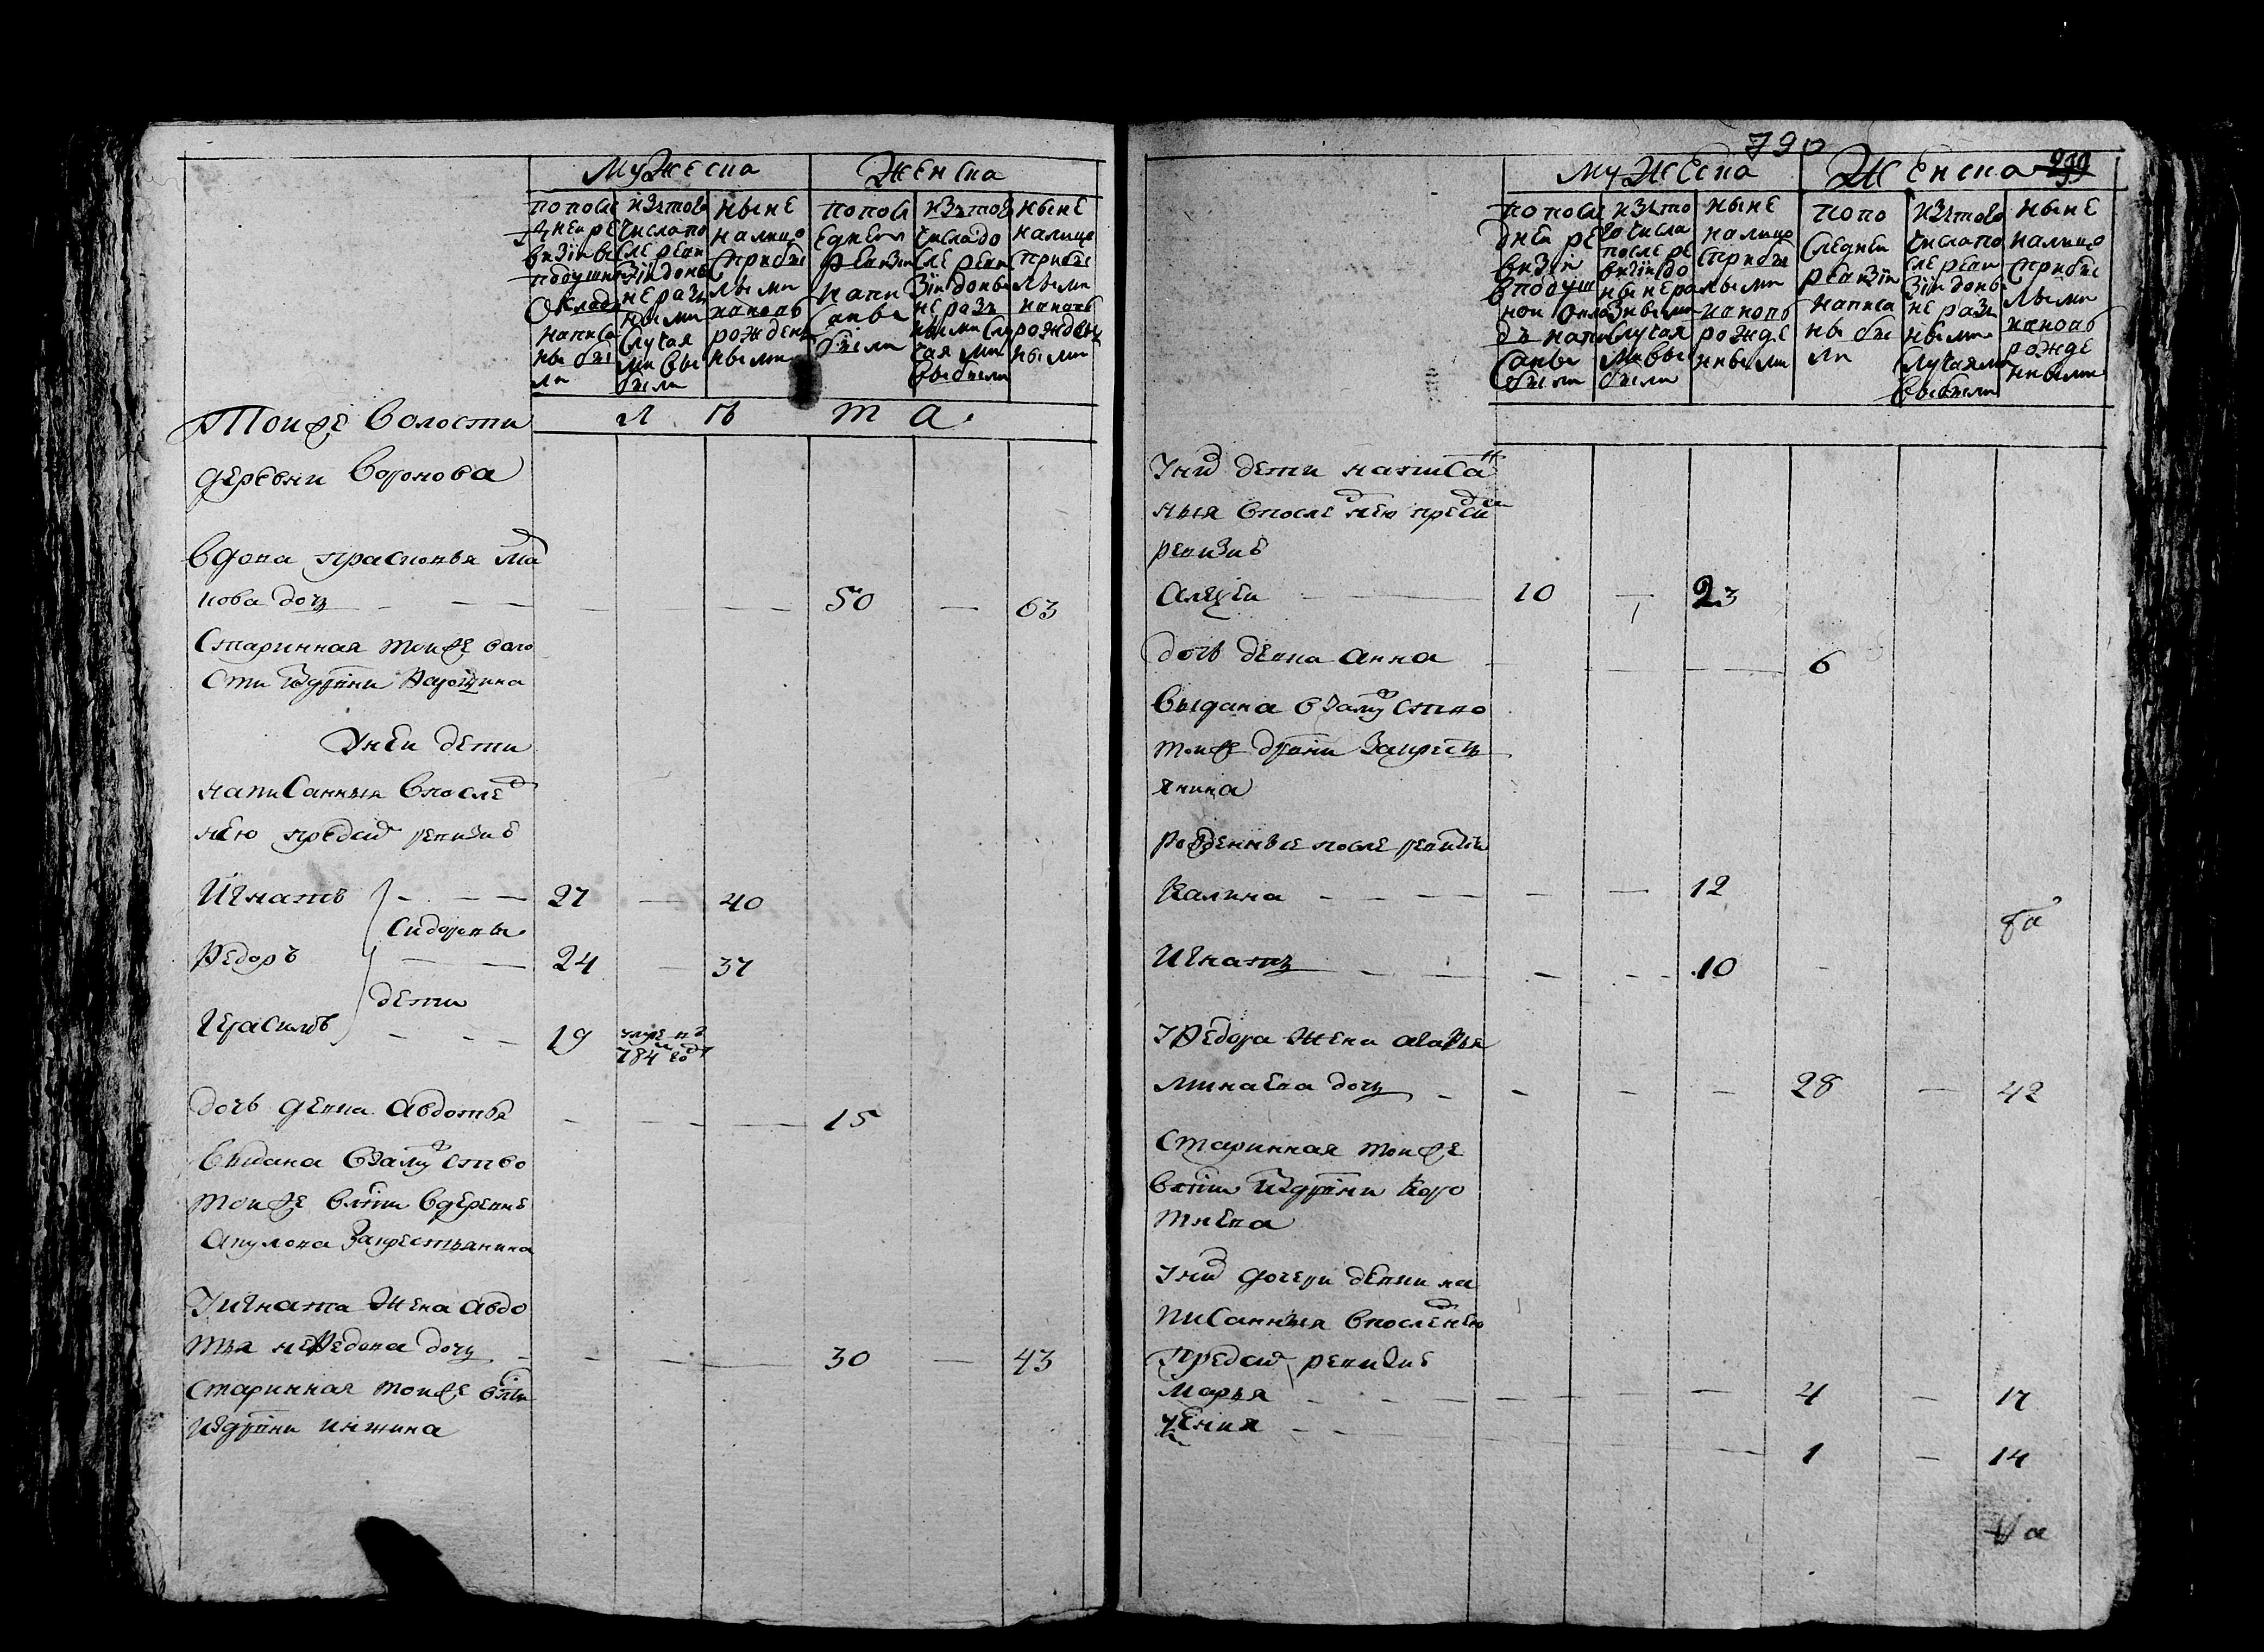 Мужеска Женска
по после
дней ре
визiи в
подушн
окладъ
написа
ны бы
ли
изъ того
числа по
сле реви
зiи до ны
не разн
ыми
случая
ми вы
были
ныне
налицо
с прибы
лыми
и вновь
рожден
ными
по посл
едней
ревизiи
напи
саны
были
изъ того
числа до
сле реви
зiи до ны
не разъ
ными слу
чая ми
выбыли
ныне
налицо
с прибы
лыми
и вновь
рожден
ными
л ѣ т а
Тоиже волости
деревни воронова
вдова прасковья
кова дочь 50 63
Старинная тоиже воло
сти
Унеи дети
написанныя впослед
нею пред сим ревизиѣ
Игнатъ 27 40
Сидоровы
Ѳедоръ 24 37
дети
Герасимъ 19 умре в
784 году
дочь девка авдотья 15
выдана взамужство
тоиже влсти вдеревне
акулова закрестьянина
Уигната жена авдо
тья неѲедова дочь 30 43
старинная тоиже влсти
издрвни иншина
790
299
Мужеска Женска
по после
дней ре
визiи
в подуш
ной окла
дъ напи
саны
были
изъ то
го числа
после ре
визiи до
ныне ра
зными
случая
ми вы
были
ныне
налицо
с прибы
лыми
и вновь
рожде
нными
по по
следней
ревизiи
написа
ны бы
ли
изъ того
числа по
сле реви
зiи до ны
не разн
ными
случаями
выбыли
ныне
налицо
с прибы
лыми
и вновь
рожде
нными
Уних дети написан
ныя впоследнею предсим
ревизиѣ
Алѯѣи 10 23
дочь девка анна 6
выдана взамужство
тоиже дрвни закресть
янина
рожденные после ревизiи
Калина 12
Игнатъ 10
УѲедора жена маѲья
минаева дочь 28 42
Старинная тоиже
влсти издрвни Коро
тнева
Уних дочери девки на
писанныя впоследнею
предсим ревизиѣ
Марья 4 17
Ѯения 1 14